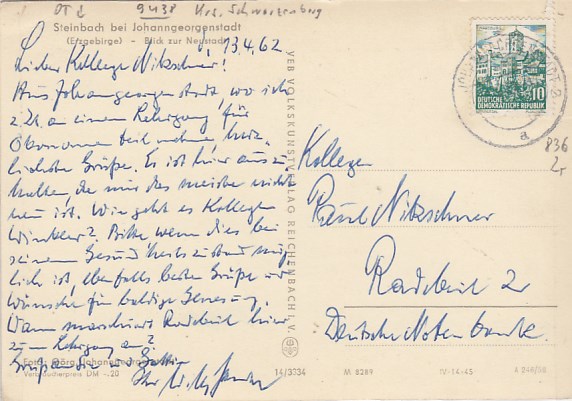 OT d 9438 Krs. Schwarzenberg
Steinbach bei Johanngeorgenstadt
(Erzgebirge) - Blick zur Neustadt
13.4.62
Lieber Kollege Nitzschner!
Aus Johanngeorgenstadt, wo ich
z. Zt. an einem Lehrgang für
Ökonomen teilnehme, herz-
lichste Grüße. Es ist hier auszu-
halten, da mir das meiste nicht
neu ist. Wie geht es Kollegen
Winkler? Bitte wenn dies bei
seinem Gesundheitszustand mög-
lich ist, ebenfalls beste Grüße und
Wünsche für baldige Genesung.
Wann marschiert Radebeul hier
zum Lehrgang an?
Gruß an Sie und Gattin
Ihr
Foto: Görg, Johanngeorgenstadt
Verbraucherpreis DM -.20
VEB VOLKSKUNSTVERLAG REICHENBACH I. V.
14/3334
DEUTSCHE
DEMOKRATISCHE REPUBLIK
10
a
836
2r
Kollegen
Paul Nitzschner
Radebeul 2
Deutsche Notenbank.
M 8289
IV-14-45